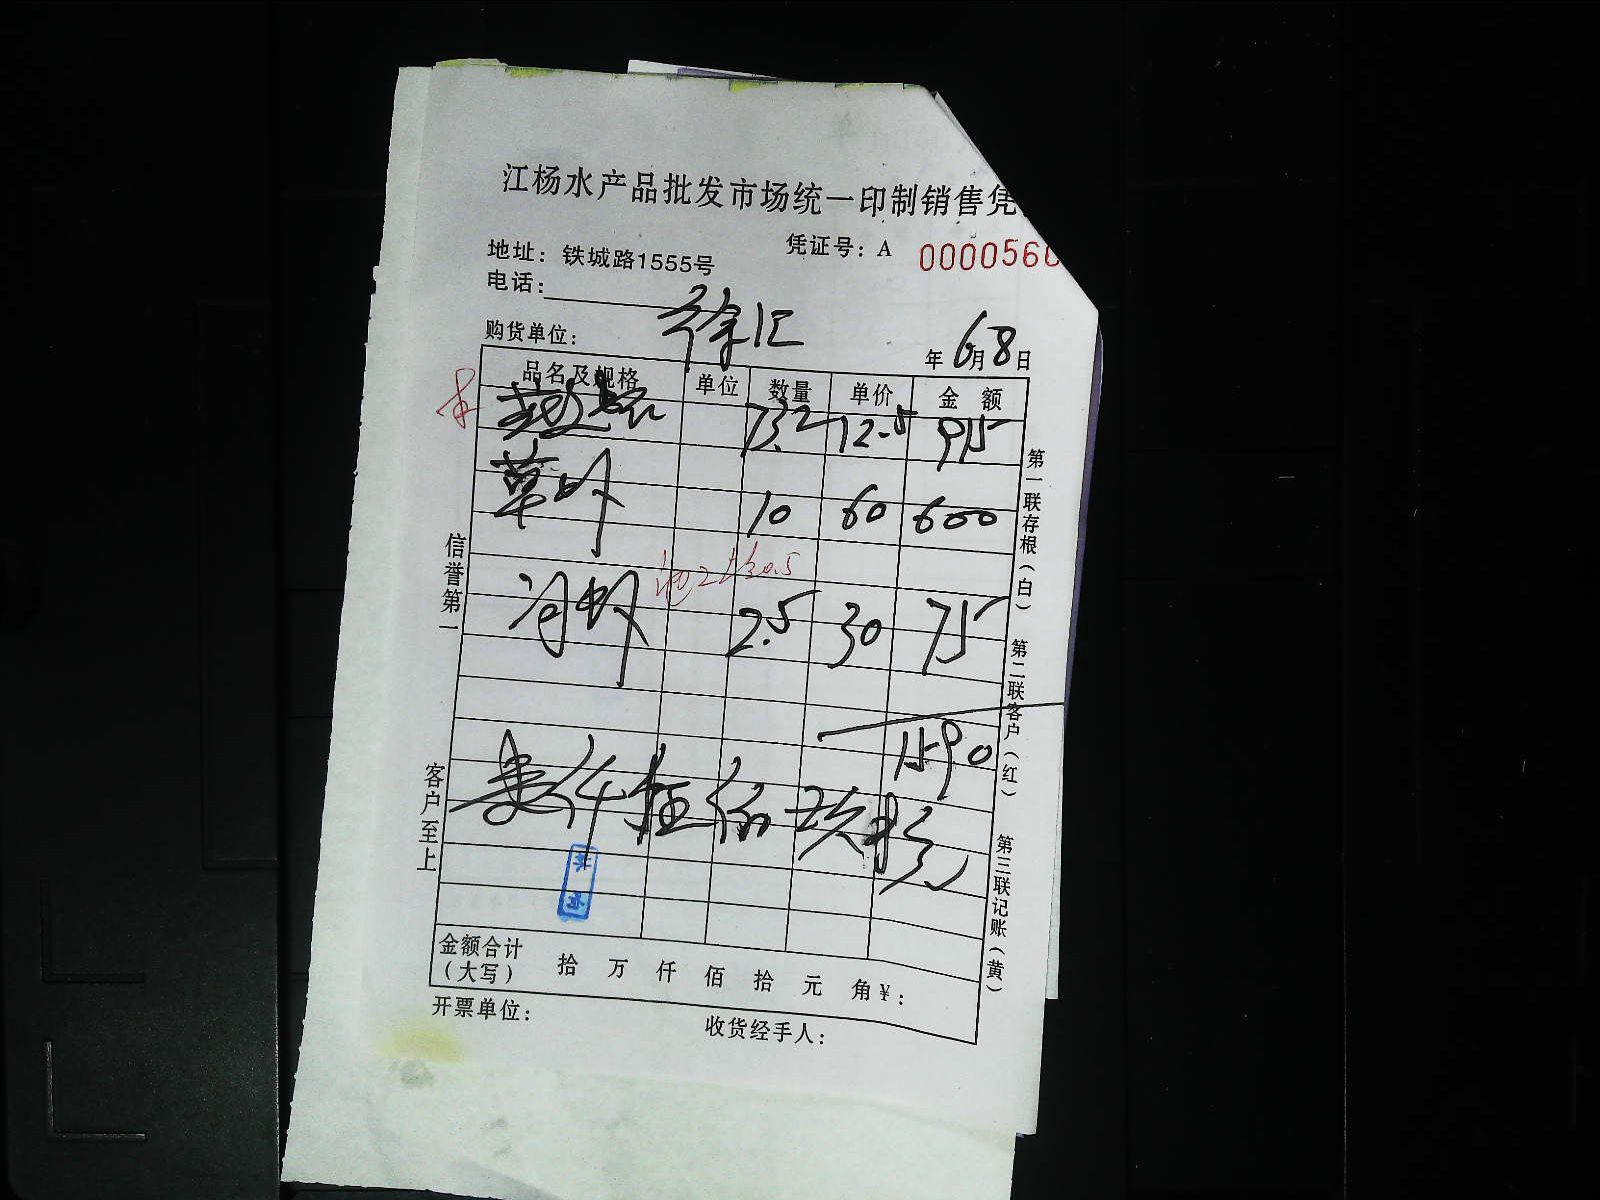 江杨水产品批发市场统一印制销售凭
凭证号：A 0000560
地址：铁城路1555号
电话：
购货单位： 徐汇
年 6月 8日
品名及规格 单位 数量 单价 金 额
73.2 12.5 915
草虾 10 60 600
2斤30.5
河虾 2.5 30 75
1590
壹仟伍佰玖拾元
金额合计（大写） 拾 万 仟 佰 拾 元 角¥：
开票单位：
收货经手人：
信誉第一
客户至上
第一联存根（白）
第二联客户（红）
第三联记账（黄）